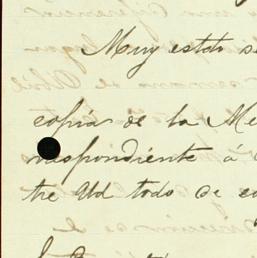 Muy estado s
copia de la Me
respondiente á
tre Ud todo se e